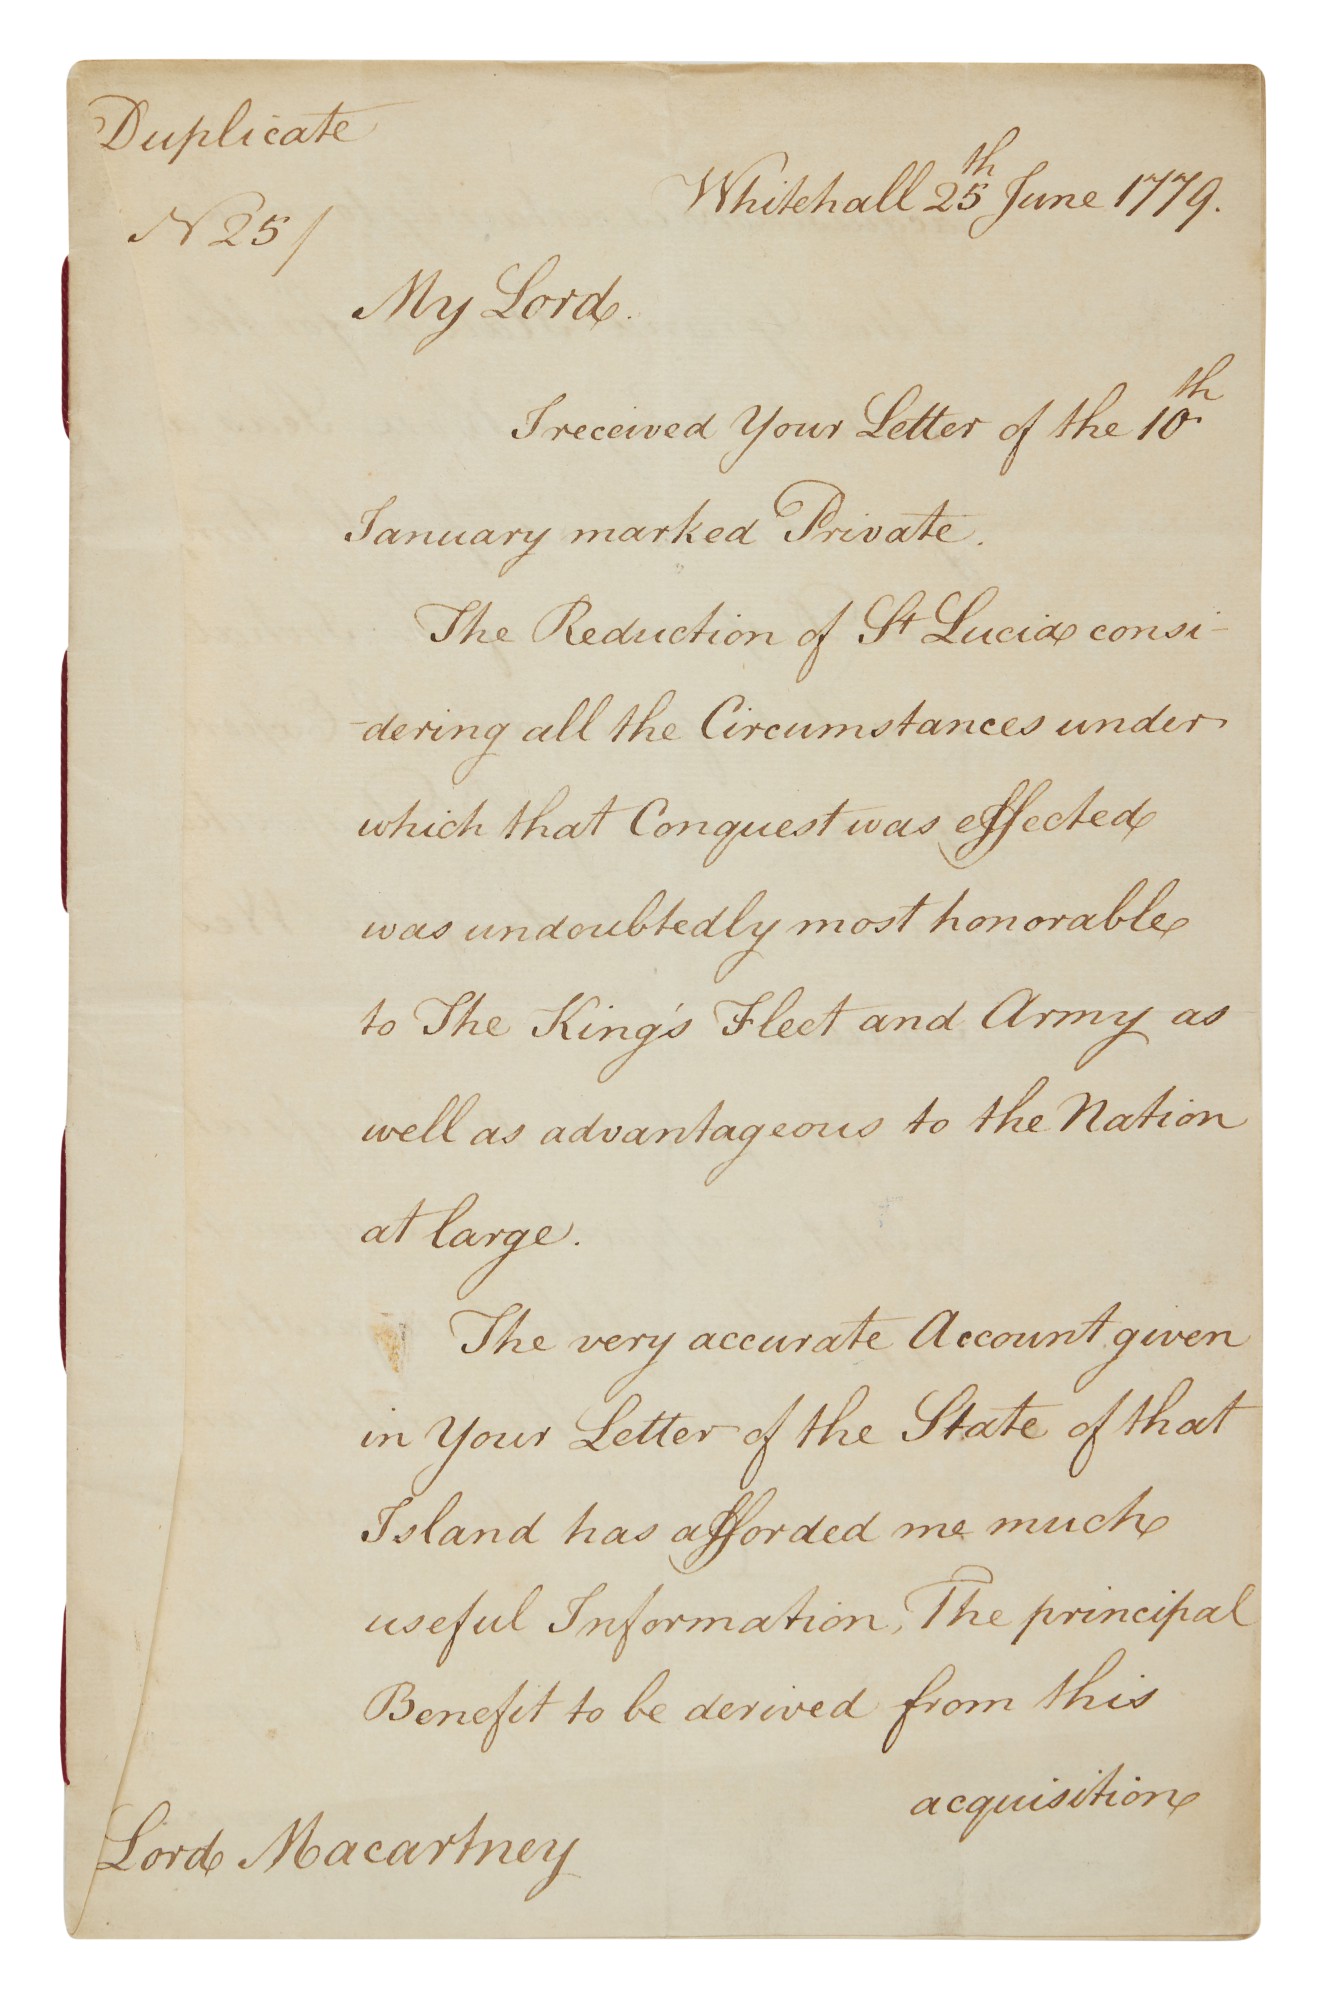 Duplicate
Whitehall 25th June 1779.
N 25/
My Lord.
I received Your Letter of the 10th
January marked Private.
The Reduction of St Lucia consi-
-dering all the Circumstances under
which that Conquest was effected
was undoubtedly most honorable
to The King's Fleet and Army as
well as advantageous to the Nation
at large.
The very accurate Account given
in Your Letter of the State of that
Island has afforded me much
useful Information, The principal
Benefit to be derived from this
acquisition
Lord Macartney